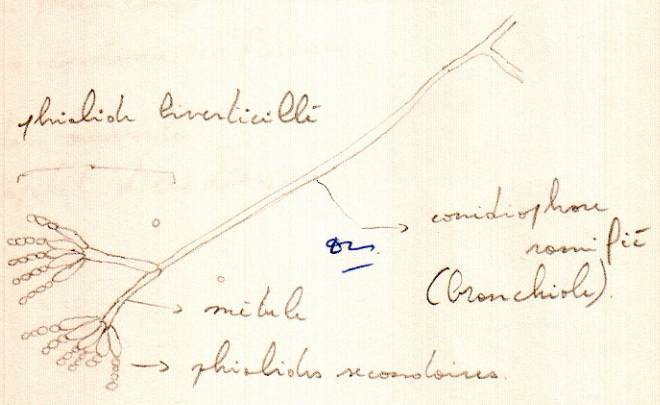 phialide biverticillé
conidiophore
ramifié
(bronchiole).
métule
phialides secondaires.